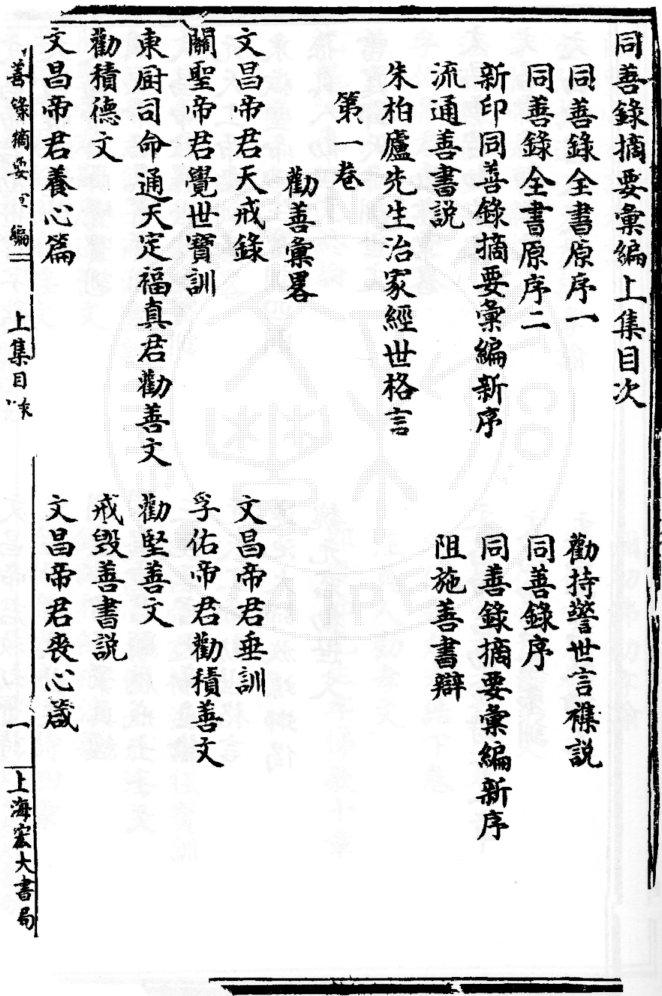 同善錄摘要彙編上集目次
同善錄全書原序一　勸持警世言襍説
同善錄全書原序二　同善錄序
新印同善錄摘要彙編新序　同善錄摘要彙編新序
流通善書説　阻施善書辯
朱柏廬先生治家經世格言
第一卷
勸善彙畧
文昌帝君天戒錄　文昌帝君垂訓
關聖帝君覺世寶訓　孚佑帝君勸積善文
東厨司命通天定福真君勸善文　勸堅善文
勸積德文　戒毁善書説
文昌帝君養心篇　文昌帝君喪心箴
善錄摘要 編　上集目　一　上海宏大書局